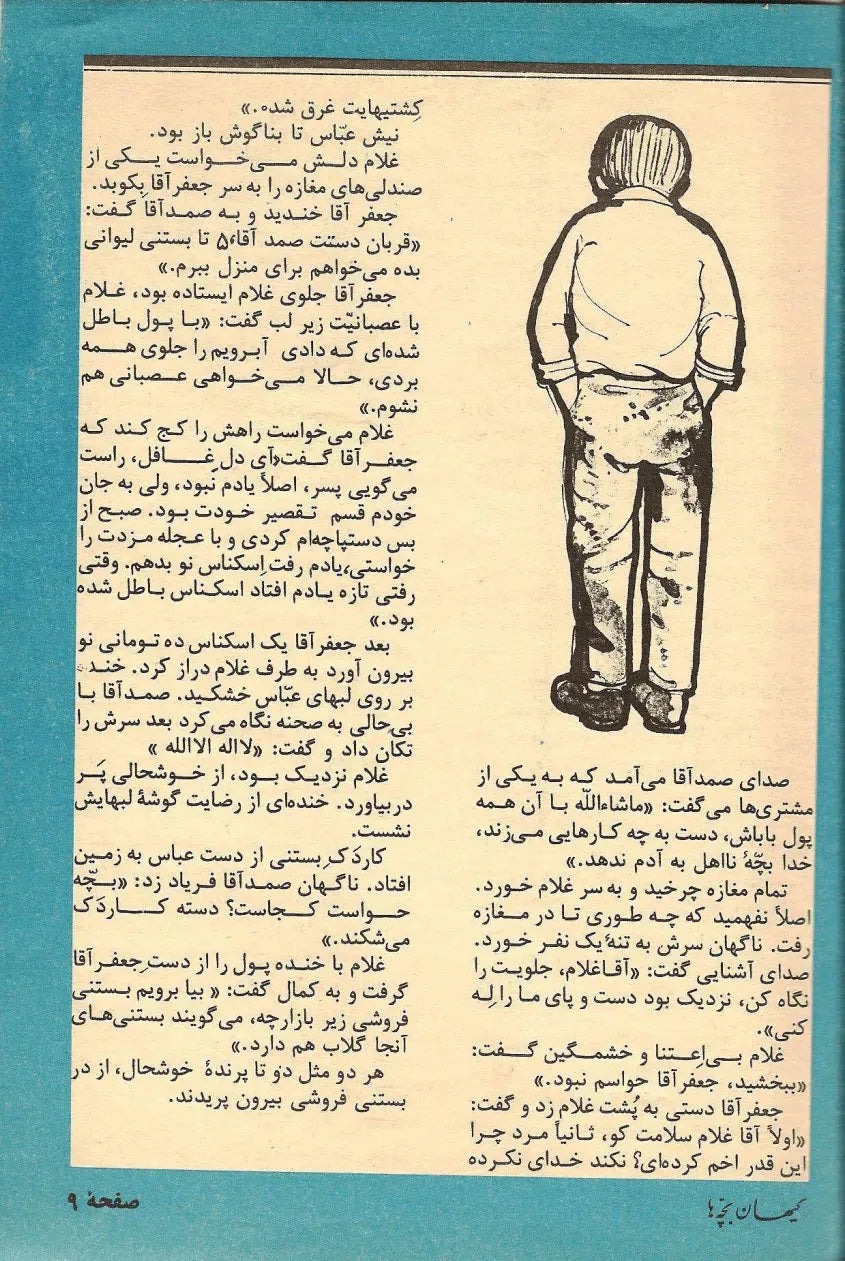 صدای صمدآقا می‌آمد که به یکی از
مشتری‌ها می‌گفت: «ماشاءاللّه با آن همه
پول باباش، دست به چه کارهایی می‌زند،
خدا بچّهٔ نااهل به آدم ندهد.»
تمام مغازه چرخید و به سر غلام خورد.
اصلاً نفهمید که چه طوری تا در مغازه
رفت. ناگهان سرش به تنهٔ یک نفر خورد.
صدای آشنایی گفت: «آقاغلام، جلویت را
نگاه کن، نزدیک بود دست و پای ما را لِه
کنی».
غلام بی‌اِعتنا و خشمگین گفت:
«ببخشید، جعفرآقا حواسم نبود.»
جعفرآقا دستی به پُشت غلام زد و گفت:
«اولاً آقا غلام سلامت کو، ثانیاً مرد چرا
این قدر اخم کرده‌ای؟ نکند خدای نکرده
کِشتیهایت غرق شده.»
نیش عبّاس تا بناگوش باز بود.
غلام دلش می‌خواست یکی از
صندلی‌های مغازه را به سر جعفرآقا بکوبد.
جعفر آقا خندید و به صمدآقا گفت:
«قربان دستت صمد آقا، ۵ تا بستنی لیوانی
بده می‌خواهم برای منزل ببرم.»
جعفرآقا جلوی غلام ایستاده بود، غلام
با عصبانیّت زیر لب گفت: «با پول باطل
شده‌ای که دادی آبرویم را جلوی همه
بردی، حالا می‌خواهی عصبانی هم
نشوم.»
غلام می‌خواست راهش را کج کند که
جعفرآقا گفت«آی دل غافل، راست
می‌گویی پسر، اصلاً یادم نبود، ولی به جان
خودم قسم تقصیر خودت بود. صبح از
بس دستپاچه‌ام کردی و با عجله مزدت را
خواستی، یادم رفت اِسکناس نو بدهم. وقتی
رفتی تازه یادم افتاد اسکناس باطل شده
بود.»
بعد جعفرآقا یک اسکناس ده تومانی نو
بیرون آورد به طرف غلام دراز کرد. خنده
بر روی لبهای عبّاس خشکید. صمدآقا با
بی‌حالی به صحنه نگاه می‌کرد بعد سرش را
تکان داد و گفت: «لااله الاالله »
غلام نزدیک بود، از خوشحالی پَر
دربیاورد. خنده‌ای از رضایت گوشهٔ لبهایش
نشست.
کاردَکِ بستنی از دست عباس به زمین
افتاد. ناگهان صمدآقا فریاد زد: «بچّه
حواست کجاست؟ دسته کاردَک
می‌شکند.»
غلام با خنده پول را از دستِ جعفرآقا
گرفت و به کمال گفت: « بیا برویم بستنی
فروشی زیر بازارچه، می‌گویند بستنی‌های
آنجا گلاب هم دارد.»
هر دو مثل دو تا پرندهٔ خوشحال، از در
بستنی فروشی بیرون پریدند.
کیهان بچّه‌ها
صفحهٔ ۹